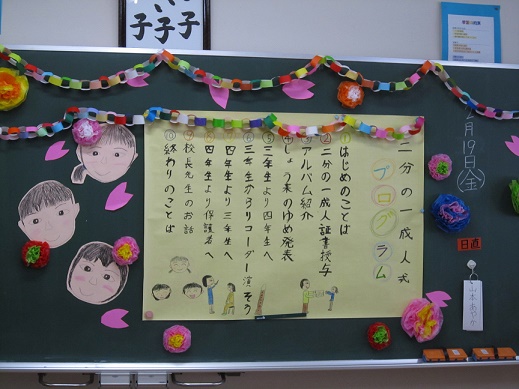 2月19日(金)
日直
二分の一成人式
プログラム
① はじめのことば
② 二分の一成人証書授与
③ アルバム紹介
④ しょう来のゆめ発表
⑤ 三年生より四年生へ
⑥ 三年生からリコーダー演そう
⑦ 四年生より三年生へ
⑧ 四年生より保護者へ
⑨ 校長先生のお話
⑩ 終わりのことば